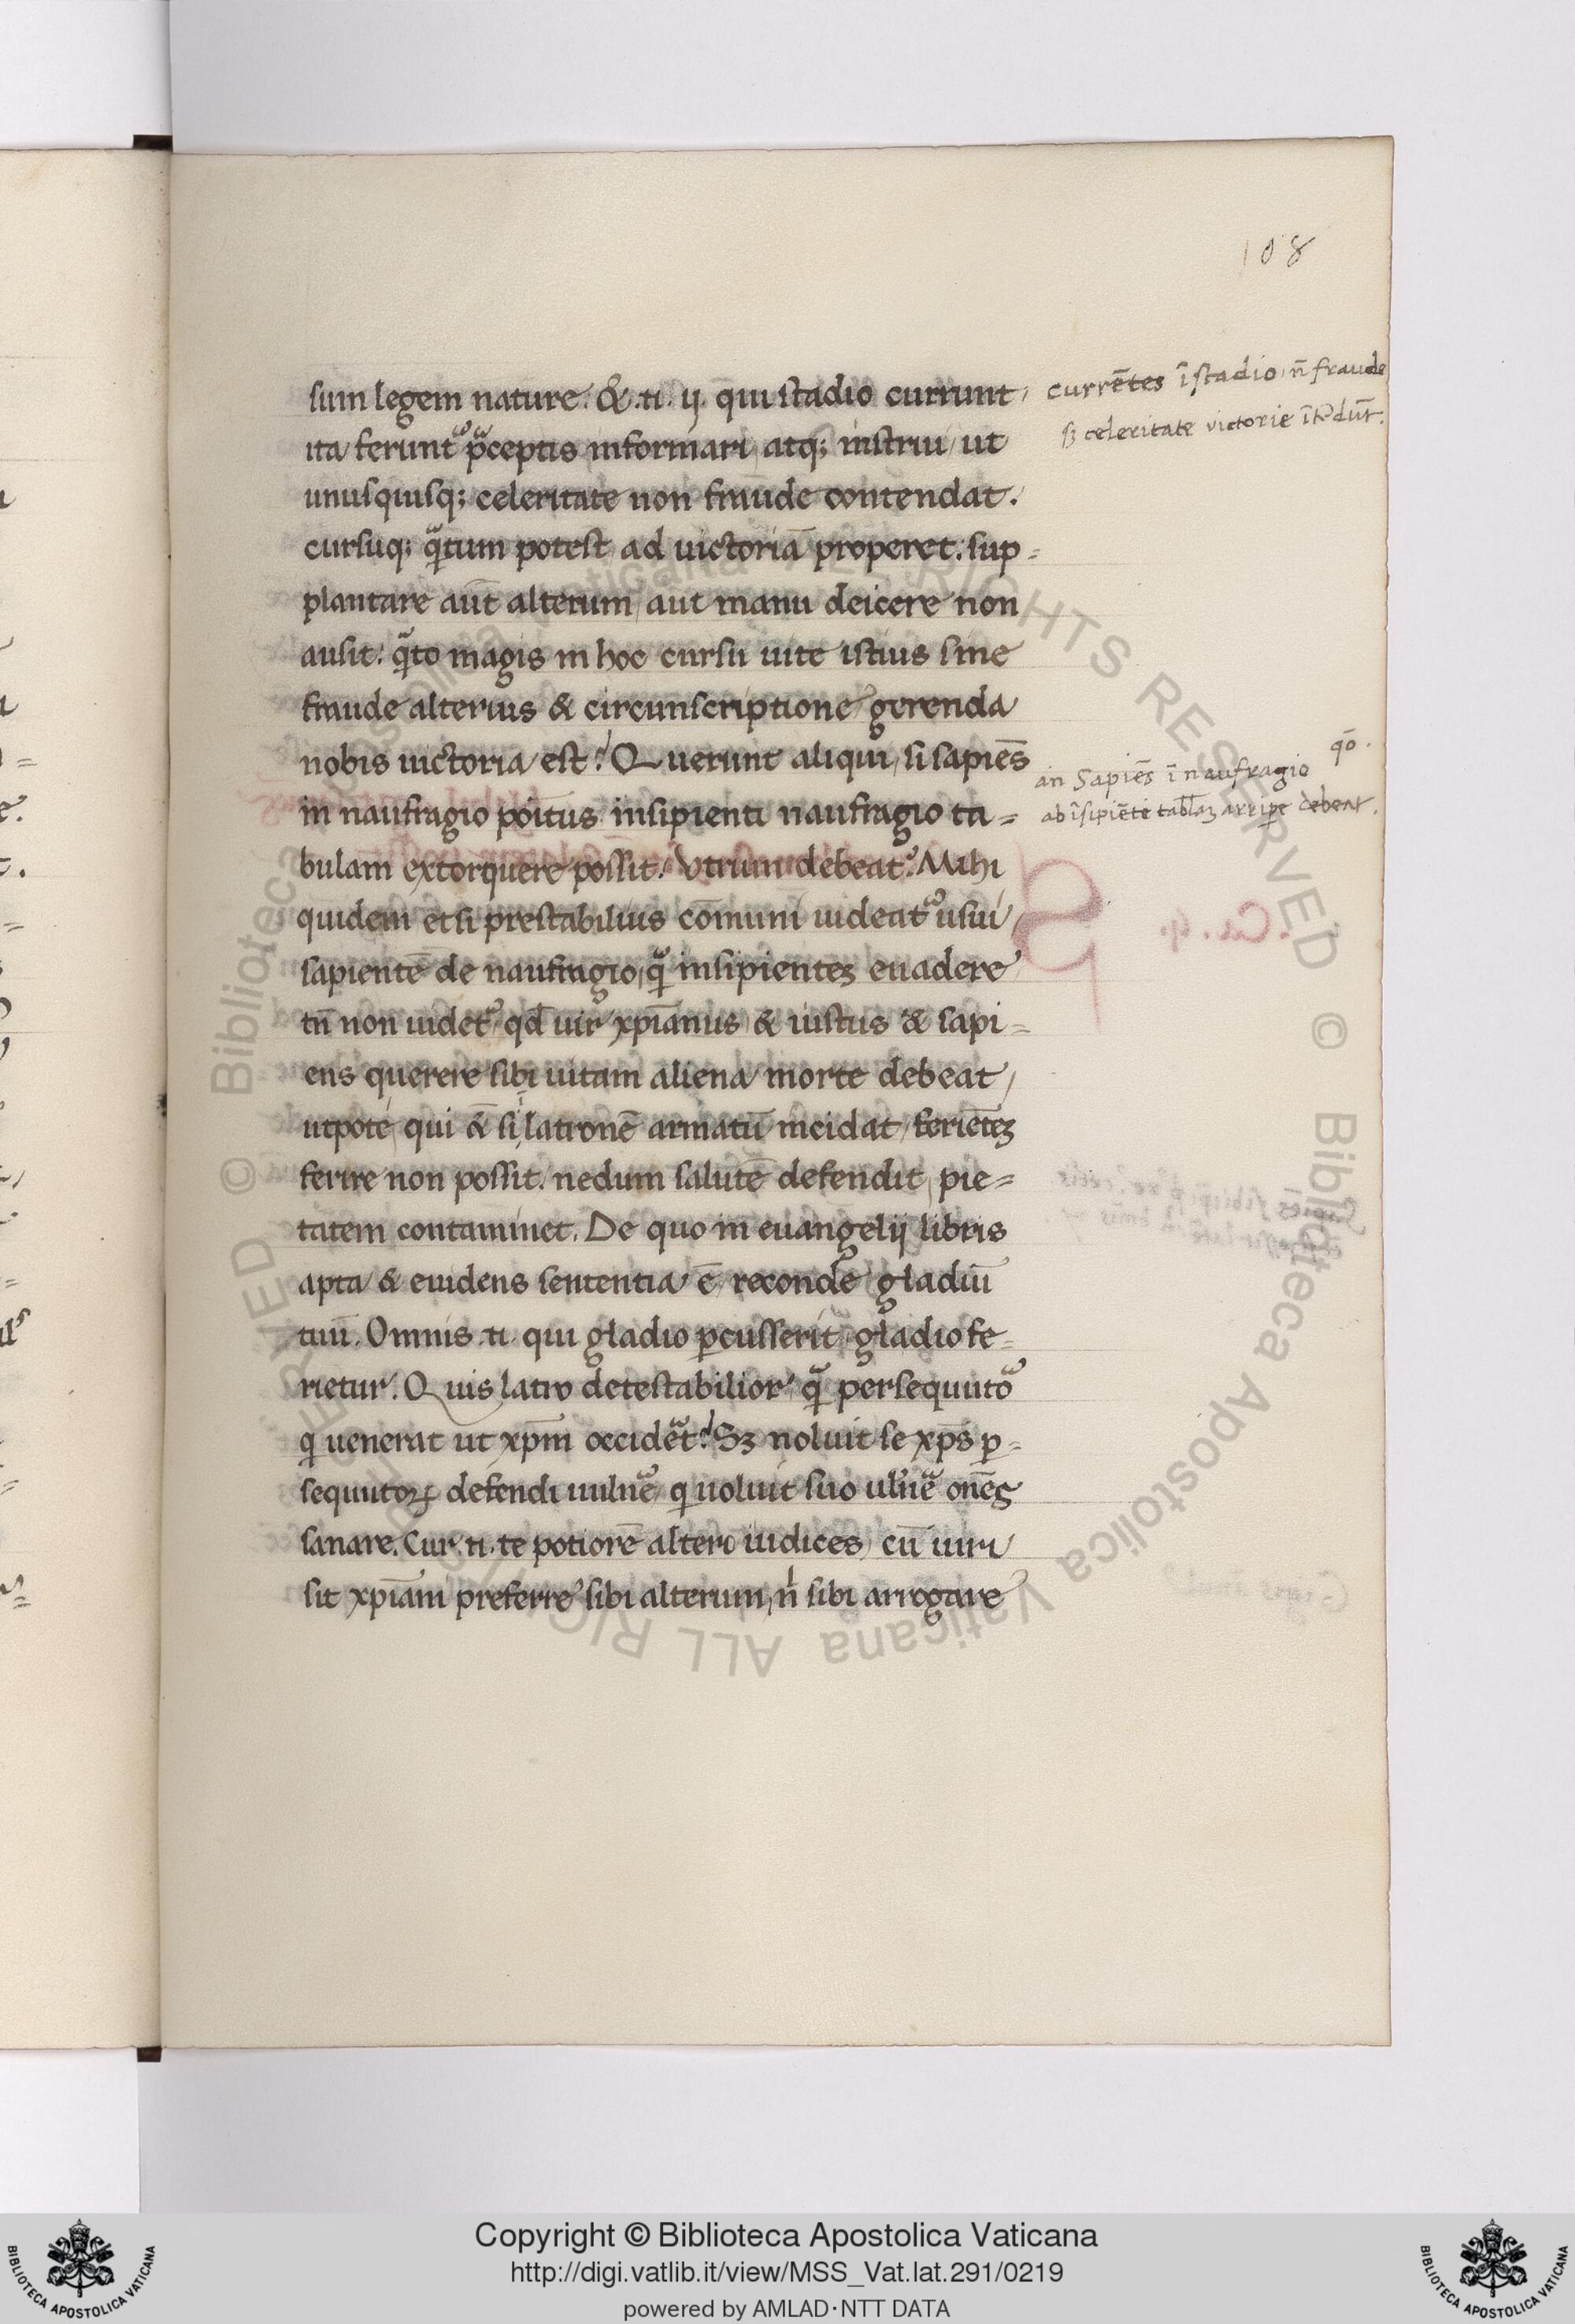 108
sum legem nature. &. n̄. ij. qui stadio currunt
ita ferunt᷑ p̄ceptis informari atq; instrui ut
unusquisq; celeritate non fraude contendat.
cursuq; qᷓtum potest ad uictoriā properet. sup=
plantare aut̄ alterum aut manu deicere non
ausit. qᷓto magis in hoc cursu uite istius sine
fraude alterius & circunscriptione gerenda
nobis uictoria est? Querunt aliqui si sapiēs
in naufragio poitus insipienti naufragio ta=
bulam extorquere possit. Vtrum debeat? Mihi
quidem etsi prestabilius cōmuni uideat᷑ usui
sapientē de naufragio qᷓ insipientez euadere
tn̄ non uidet᷑ qd̄ uir xp̄ianus & iustus & sapi=
ens querere sibi uitam aliena morte debeat
utpote qui & si ī latronē armatū incidat feriētez
ferire non possit. nedum salutē defendit pie=
tatem contaminet. De quo in euangelij libris
apta & euidens sententia ē reconde gladiū
tuū. Omnis .n̄. qui gladio p̱cusserit gladio fe=
rietur. Quis latro detestabilior qᷓ persequuto᷑
qi uenerat ut xp̄m occidēt? Sz noluit se xp̄s p̱=
sequutoꝝ defendi uulne᷑ qi uoluit suo ulne᷑ om̄es
sanare. Cur .n̄. te potiorē altero iudices cū uiri
sit xp̄iani preferre sibi alterum, n̄ sibi arrogare
currētes ī stadio n̄ fraude
sꝫ celeritate victorie ītēdūt.
qō.
an Sapiēs ī naufragio
ab īsipiēte tabl̄aꝫ arripe debeat.
Copyright © Biblioteca Apostolica Vaticana
http://digi.vatlib.it/view/MSS_Vat.lat.291/0219
powered by AMLAD·NTT DATA
BIBLIOTECA APOSTOLICA VATICANA
BIBLIOTECA APOSTOLICA VATICANA
© Biblioteca Apostolica Vaticana ALL RIGHTS RESERVED © Biblioteca Apostolica Vaticana ALL RIGHTS RESERVED